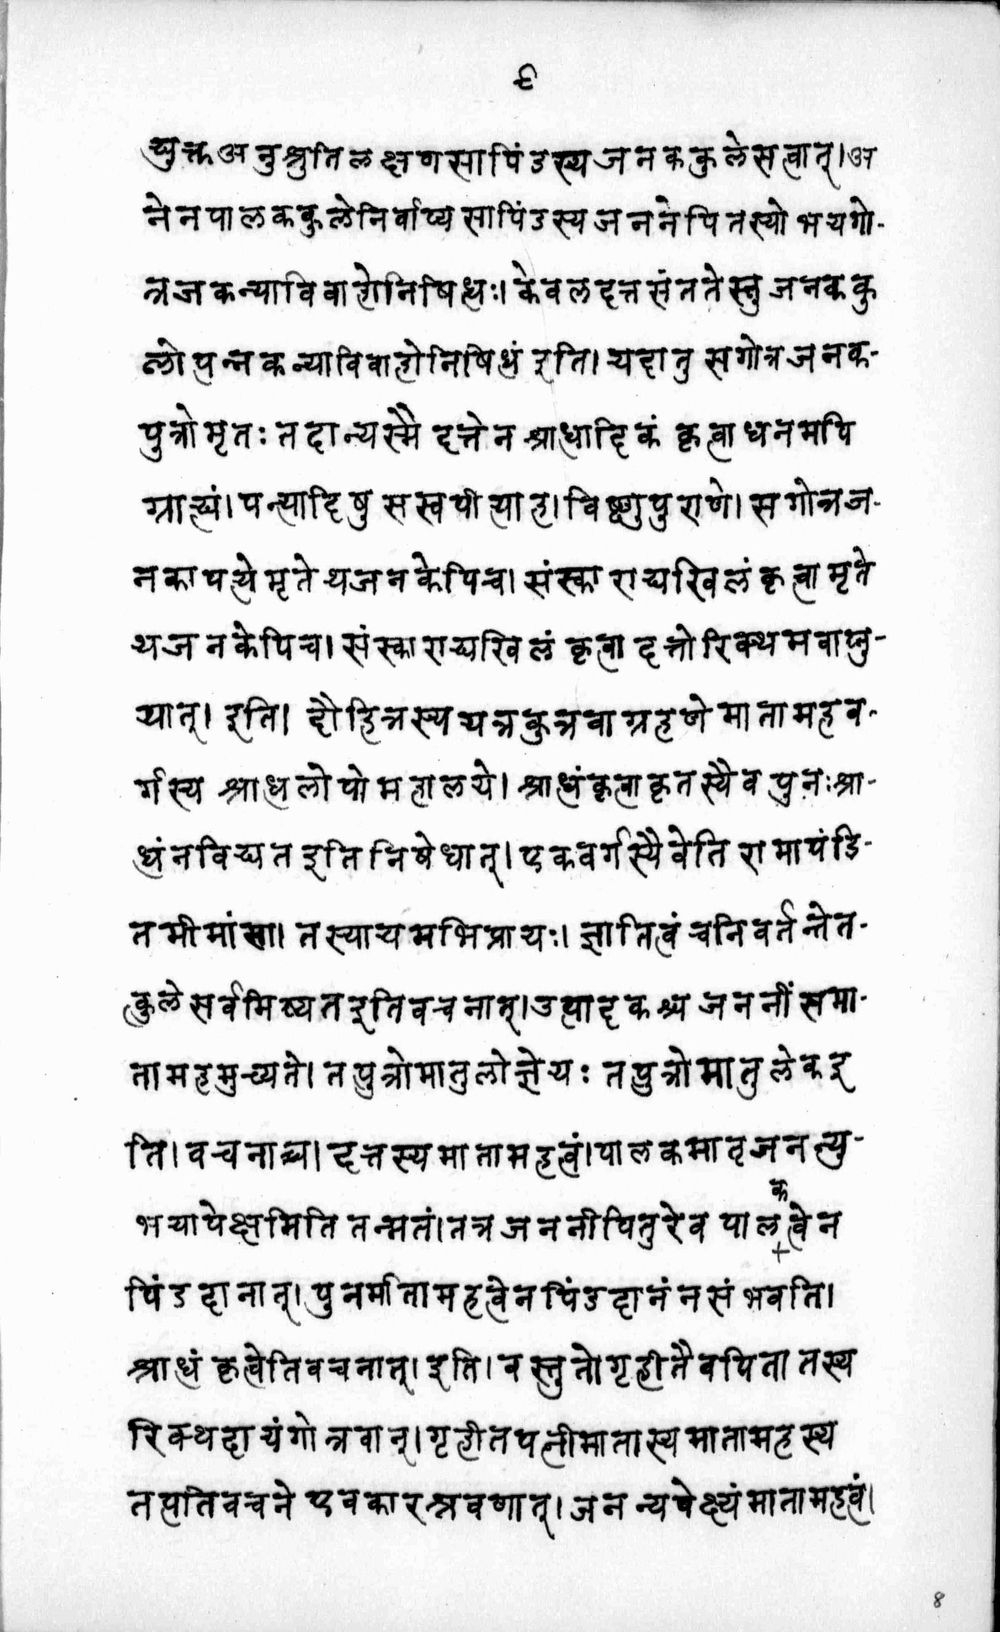 ६
युक्त अनुश्रुतिलक्षणसापिंडस्यजनककुलेसत्वात्।अ
नेनपालककुलेनिर्वाप्यसापिंडस्यजननेपितस्योभयगो-
त्रजकन्याविवाहोनिषिध्धः।केवलदत्तसंततेस्तुजनककु
लोपन्नकन्याविवाहोनिषिधं इति।यदातु सगोत्रजनक-
पुत्रोमृतः तदान्यस्मै दत्तेन श्राधादिकं कृत्वाधनमपि
ग्राह्यं।पत्न्यादिषु सस्वपीत्याह।विष्णुपुराणे।सगोत्रज-
नकापत्येमृतेथजनकेपिच।संस्काराद्यखिलंकृत्वामृते
थजनकेपिच।संस्काराद्यखिलं कृत्वा दत्तोरिक्थमवाप्नु-
यात्। इति। दौहित्रस्ययत्रकुत्रवाग्रहणे मातामहव-
र्गस्य श्राधलोपोमहालये।श्राध्धंकृत्वाकृतस्यैव पुनःश्रा-
ध्धंनविद्यत इति निषेधात्।एकवर्गस्यैवेति रामापंडि-
तमीमांसा।तस्यायमभिप्रायः।ज्ञातित्वंचनिवर्तन्तेत-
कुलेसर्वमिष्यत इतिवचनात्।उत्पादकश्य जननीं समा-
तामहमुच्यते।तपुत्रोमातुलोज्ञेयः तपुत्रोमातुलेकइ
ति।वचनाच्च।दत्तस्यमातामहत्वं।पालकमातृजनत्यु-
भयापेक्षमिति तन्मतं।तत्रजननीपितुरेव पालकत्वेन
पिंडदानात्।पुनर्मातामहत्वेनपिंडदानंनसंभवति।
श्राधं कृत्वेतिवचनात्।इति।वस्तुतोगृहीतैवपितातस्य
रिक्थदायंगोत्रवान्।गृहीतपत्नीमातास्यमातामहस्य
तत्पतिवचने एवकारश्रवणात्।जनन्यपेक्ष्यंमातामहत्वं।
8